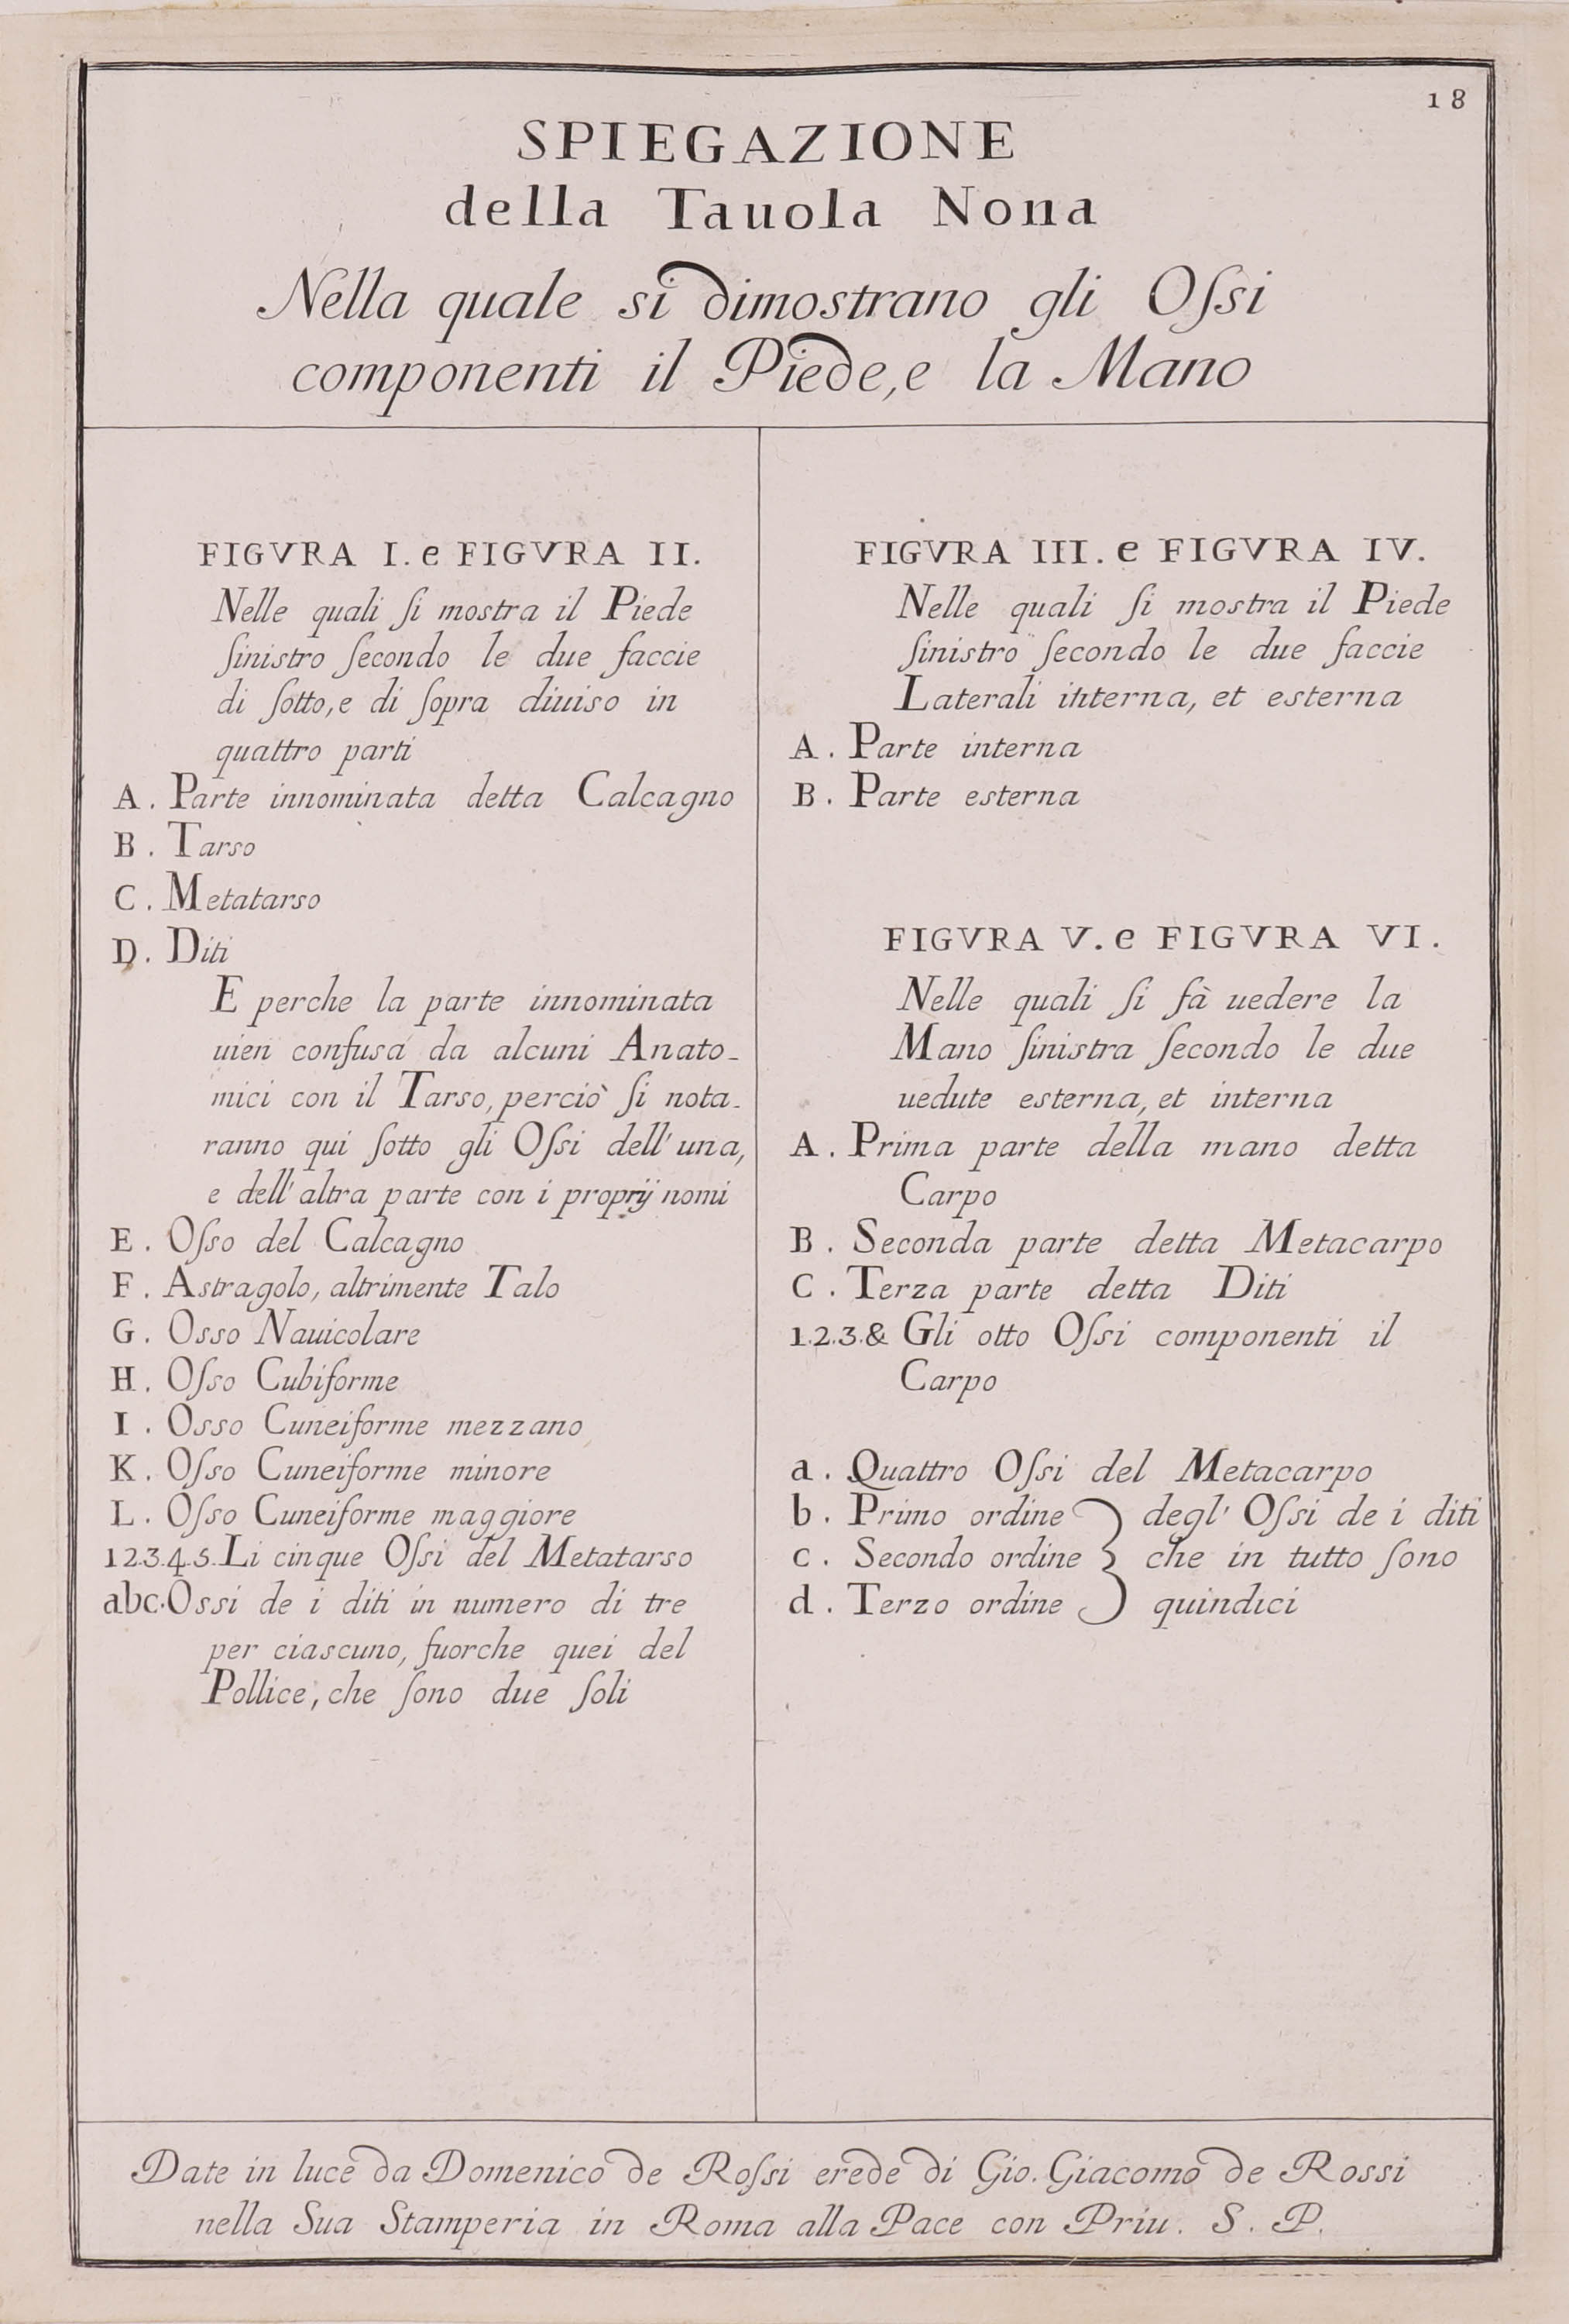 18
SPIEGAZIONE
della Tauola Nona
Nella quale si dimostrano gli Oſsi
componenti il Piede, e la Mano
FIGVRA I. e FIGVRA II.
Nelle quali ſi mostra il Piede
ſinistro ſecondo le due faccie
di ſotto, e di ſopra diuiso in
quattro parti
A. Parte innominata detta Calcagno
B. Tarso
C. Metatarso
D. Diti
E perche la parte innominata
uien confusa da alcuni Anato-
mici con il Tarso, perciò ſi nota-
ranno qui ſotto gli Oſsi dell' una,
e dell' altra parte con i proprij nomi
E. Oſso del Calcagno
F. Astragolo, altrimente Talo
G. Osso Nauicolare
H. Oſso Cubiforme
I. Osso Cuneiforme mezzano
K. Oſso Cuneiforme minore
L. Oſso Cuneiforme maggiore
1.2.3.4.5. Li cinque Oſsi del Metatarso
abc. Ossi de i diti in numero di tre
per ciascuno, fuorche quei del
Pollice, che ſono due ſoli
FIGVRA III. e FIGVRA IV.
Nelle quali ſi mostra il Piede
ſinistro ſecondo le due faccie
Laterali interna, et esterna
A. Parte interna
B. Parte esterna
FIGVRA V. e FIGVRA VI.
Nelle quali ſi fà uedere la
Mano ſinistra ſecondo le due
uedute esterna, et interna
A. Prima parte della mano detta
Carpo
B. Seconda parte detta Metacarpo
C. Terza parte detta Diti
1.2.3.& Gli otto Oſsi componenti il
Carpo
a. Quattro Oſsi del Metacarpo
b. Primo ordine } degl' Oſsi de i diti
c. Secondo ordine } che in tutto ſono
d. Terzo ordine } quindici
Date in luce da Domenico de Roſsi erede di Gio. Giacomo de Rossi
nella Sua Stamperia in Roma alla Pace con Priu. S. P.